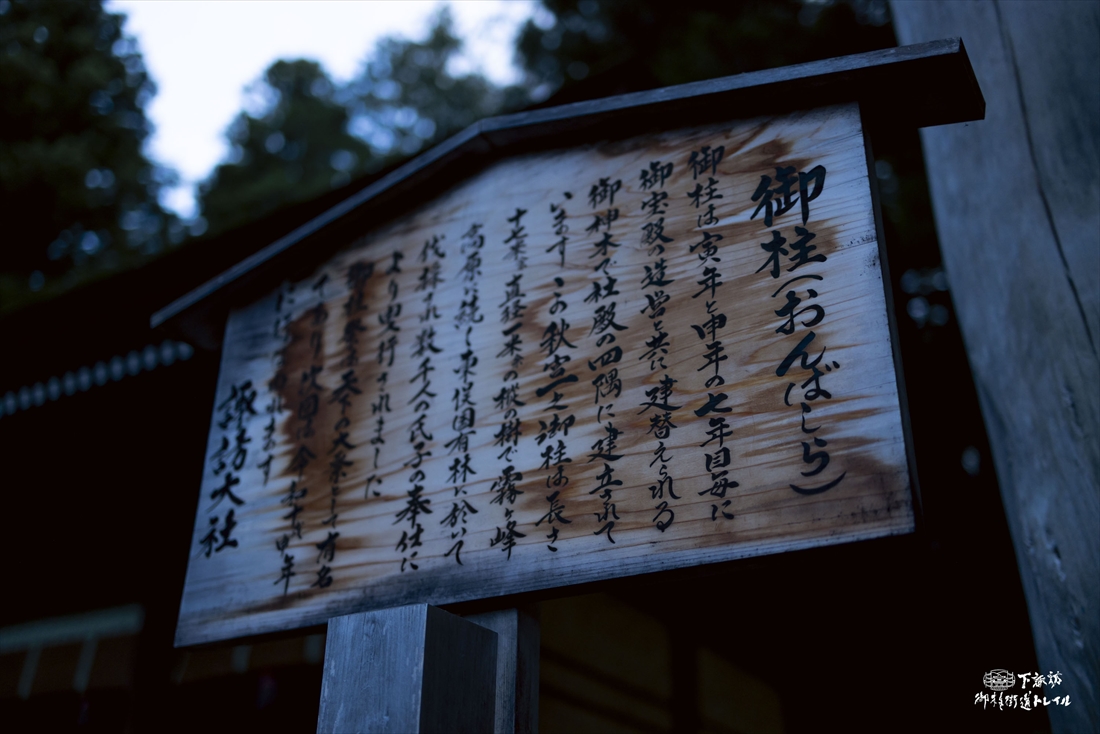 御柱（おんばしら）
御柱は寅年と申年の七年目毎に
御宝殿の造営と共に建替えられる
御神木で社殿の四隅に建立されて
います この秋宮一之御柱は長さ
十七米 直径一米余の樅の樹で霧ヶ峰
高原に続く東俣国有林に於いて
伐採され数千人の氏子の奉仕に
より曳行されました
御柱祭は天下の大祭として有名
であり次回は令和十年申年
に
ます
諏訪大社
下諏訪
御柱街道トレイル